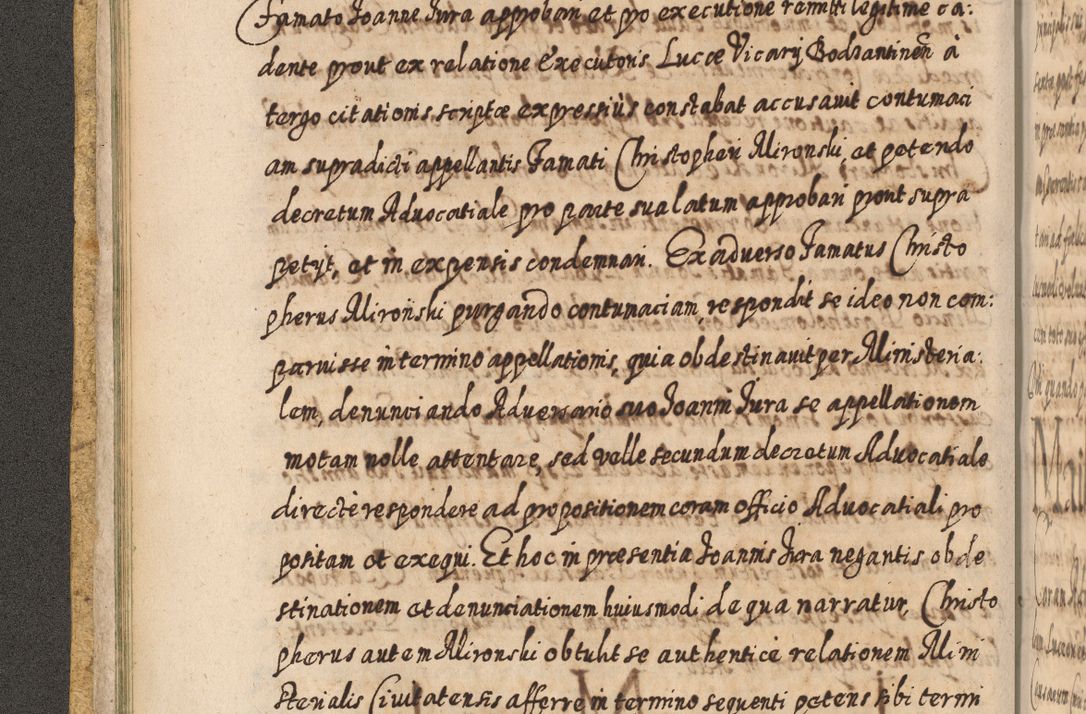 Famato Joanne Jura approbari et pro executione remitti legitime ca:
dente prout ex relatione Executoris Lucæ Vicarij Bodzantineñ à
tergo citationis scriptæ expressiùs constabat accusavit contumaci
am supradicti appellantis Famati Christopheri Mironski, et petendo
decretum Advocatiale pro parte sua latum approbari prout supra
petijt, et in expensis condemnari. Ex adverso Famatus Christo
pherus Mironski purgando contumaciam, respondit se ideo non com:
paruisse in termino appellationis, quia obdestinavit per Ministeria:
lem, denunciando Adversario suo Joanni Jura se appellationem
motam nolle attentare, sed velle secundum decretum Advocatiale
directè respondere ad propositionem coram officio Advocatiali pro
positam et exequi. Et hoc in præsentia Joannis Jura negantis obde
stinationem et denunciationem huiusmodi de qua narratur, Christo
pherus autem Mironski obtulit se authenticè relationem Mini
sterialis Civitatensis afferre in termino sequenti petens sibi termi